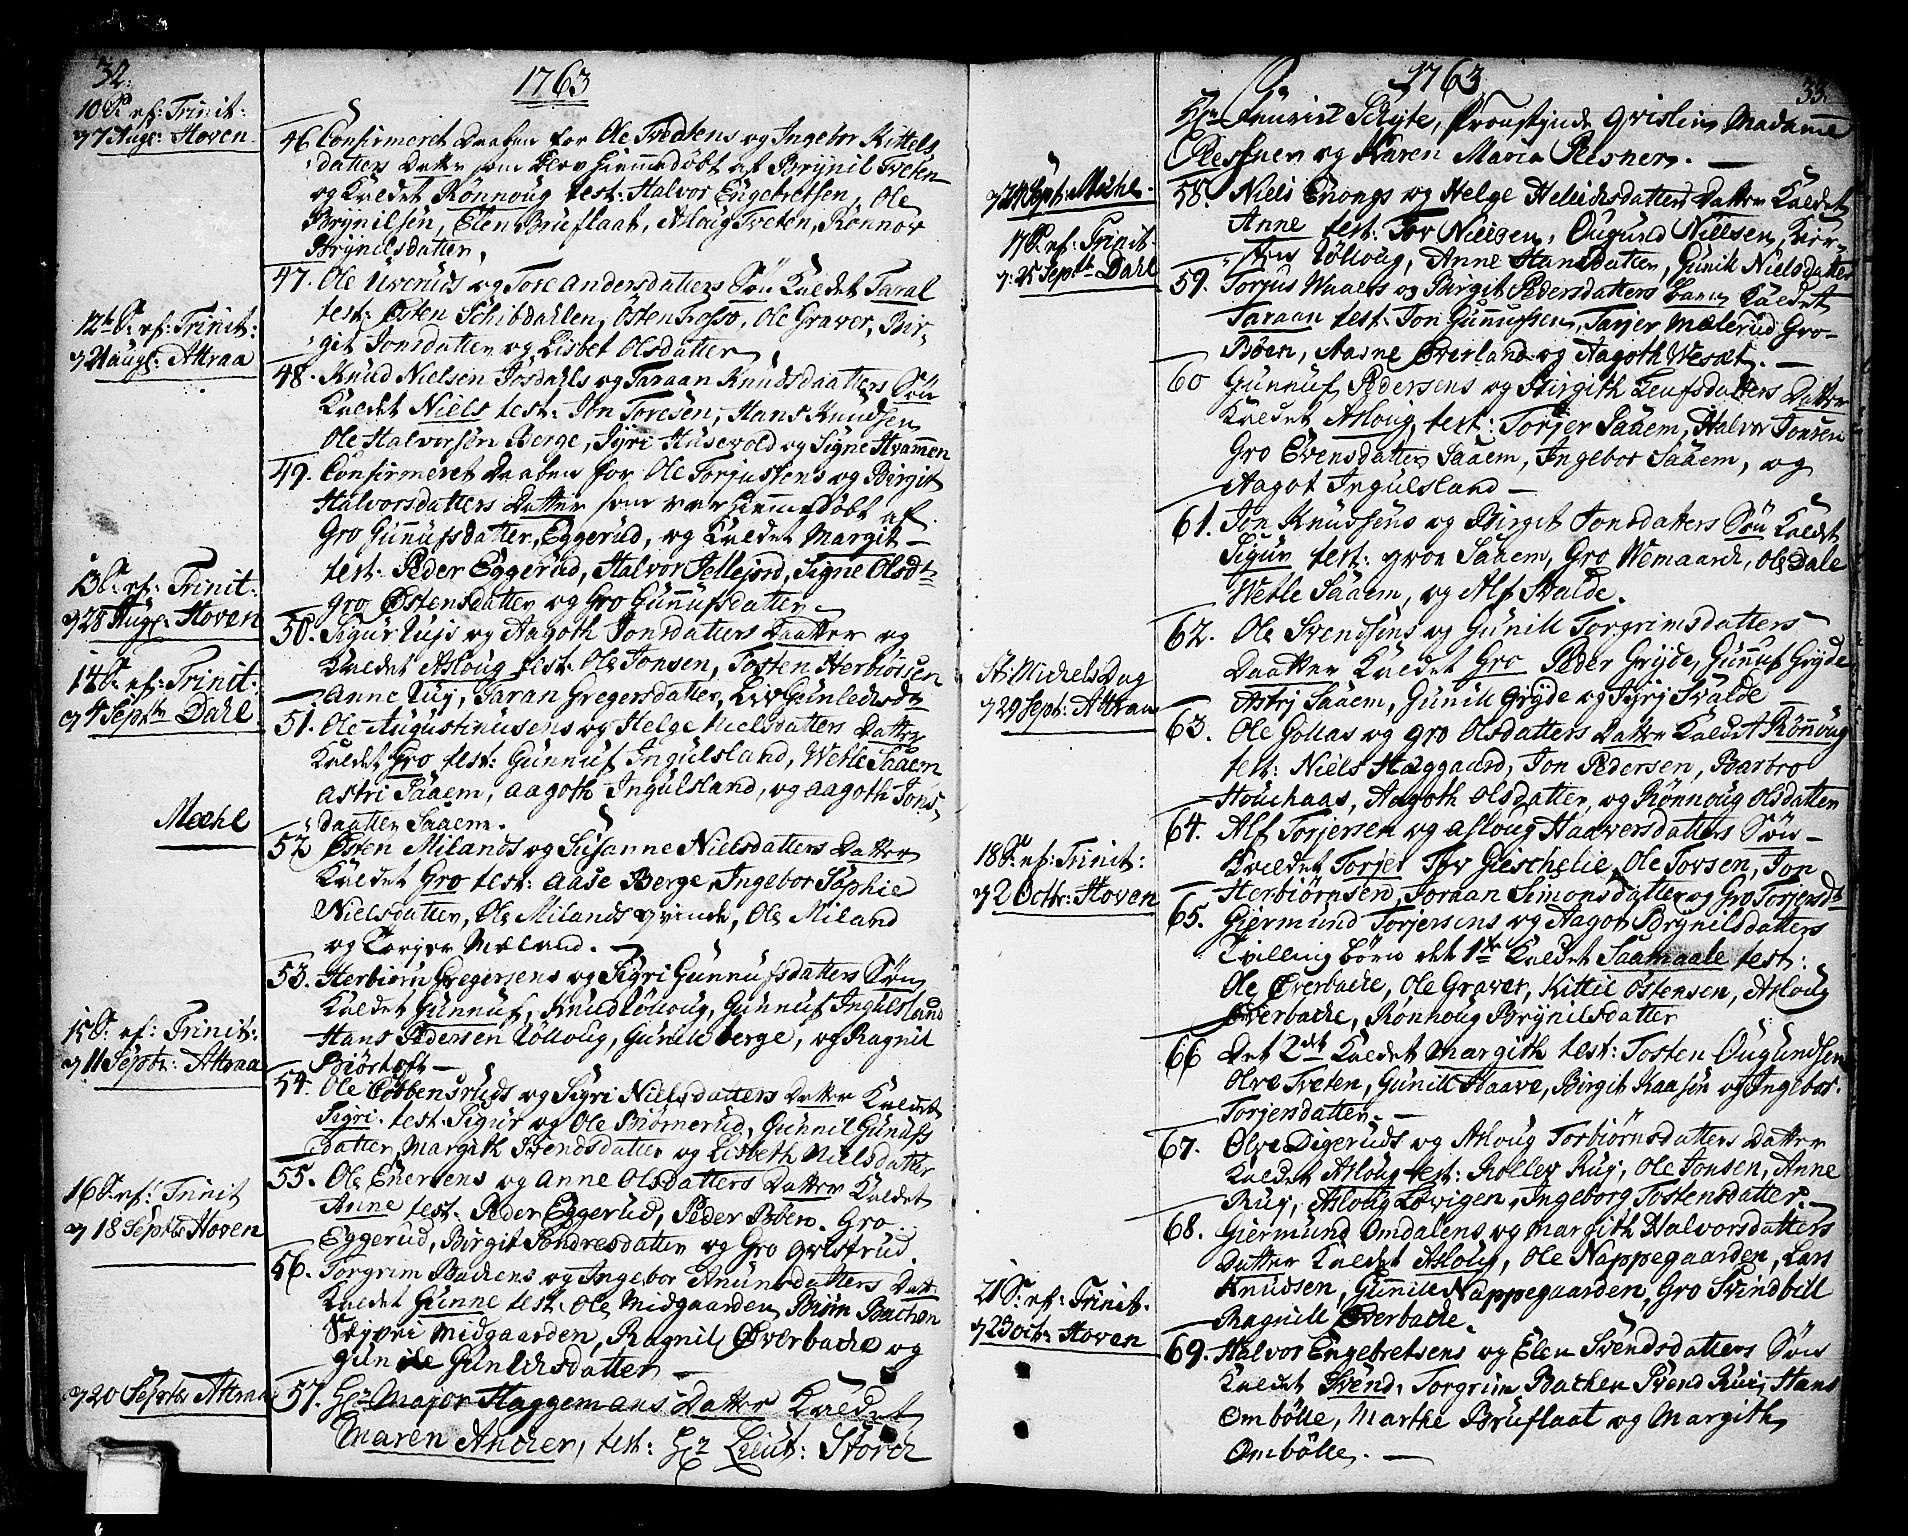 32.
1763
10 S. ef: Trinit:
7 Aug: Hoven
46. Confirmeret Daaben for Ole Tvedtens og Ingebor Kittels
datters Datter som blev hiemmedøbt af Brÿnil Tveten
og Kaldet Rönnoug test: Halvor Engebretsen, Ole
Brÿnilsen, Elen Bruflaat, Asloug Tveten, Rönnov
Brÿnilsdatter,
12te S. ef: Trinit:
21 Aug: Attraa
47. Ole Uveruds og Tore Andersdatters Sön Kaldet Taral
test: Østen Schibdahlen, Östen Fosso, Ole Graver, Bir-
git Jonsdatter og Lisbet Olsdatter,
48. Knud Nielsen Josdahls og Taraan Knudsdaatters Sön
Kaldet Niels test: Jon Toresen, Hans Knudsen
Ole Halversön Berge, Jÿri Husevold og Signe Hvammen
13 S. ef: Trinit:
28 Aug: Hoven
49. Confirmeret Daaben for Ole Torjussens og Birgit
Halvorsdatters Datter som var hiemmedöbt af
Gro Gunnufsdatter, Eggerud, og Kaldet Margit-
test: Peder Eggerud, Halvor Jellejord, Signe Olsdtr
Gro Østensdatter og Gro Gunnufsdatter
14 S. ef: Trinit:
4 Septbr Dahl
50. Sigur Lujs og Aagoth Jonsdatters Daatter og
Kaldet Asloug test: Ole Jonsen, Tosten Herbiössen
Anne Luj, Taran Gregersdatter, Liv Gunlechsdtr
51. Ole Augustinusens og Helge Nielsdatters Datter
Kaldet Gro test: Gunnuf Ingulsland, Wetle Saaem
Astri Saaem, Aagoth Ingulsland, og Aagoth Jons
daatter Saaem.
Mæhl
52 Østen Milands og Susanne Nielsdatters Datter
Kaldet Gro test: Aase Berge, Ingebor Sophie
Nielsdatter, Ole Milands qvinde, Ole Miland
og Torger Mæland.
15 S. ef: Trinit:
11 Septbr: Attraa
53. Herbiörn Gregersens og Sigri Gunnufsdatters Sön
Kaldet Gunnuf, Knud Lölloug, Gunnuf Ingulsland
Hans Pedersen Lölloug, Gunill berge, og Ragnil
Biörtoft-
54. Ole Cobbensruds og Sigri Nielsdatters Datter Kaldet
Sigri. test. Sigur og Ole Biörnerud, Gunnil Gunufs
datter, Margith Svendsdatter og Lisbeth Nielsdatter
16 S. ef: Trinit
18 Septbr Hoven
55. Ole Enersens og Anne Olsdatters Datter Kaldet
Anne test. Peder Eggerud, Peder Böen. Gro
Eggerud, Birgit Sondresdatter og Gro
56. Torgrim Bachens og Ingebor Anunsdatters Datt:
Kaldet Gunne test: Ole Midgaarden, Biörn Bachen
Midgaarden, Ragnil Øverbache og
Gunild Gunlichsdatter
20 Septbr Attraa
57. Hr Major Haggemans Datter Kaldet
Maren Ancher, test: Hr Lieut: Storch
1763
33.
Hr Schÿte, Provstinde Madame
Ressner og Karen Maria Resner.
24 Sept: Mæhl.
58. Niels Enongs og Helge Helichsdatters Datter Kaldet
Anne test: Tor Nielsen, Ougund Nielsen, Kir-
sten Lölloug, Anne Hansdatter, Gunil Nielsdatter
17 S. ef: Trinit.
25 Septbr Dahl
59. Torjus Maals og Birgit Pedersdatters barn Kaldet
Taraan test: Jon Gunnufsen, Tarjer Mælerud Gro-
Böen, Aasne Överland og Aagoth Wesæt.
60 Gunnuf Pedersens og Birgith Leufsdatters Datter
Kaldet Asloug, test: Torjer Saaem, Halvor Jonsen
Gro Evensdatter Saaem, Ingebor Saaem, og
Aagot Ingulsland
61. Jon Knudsens og Birgit Jonsdatters Sön Kaldet
Sigur test: Saaem, Gro Wemaard, Ole Dale
Wetle Saaem, og Alf Svalde.
St: Michels Dag
29 Sept: Attraae
62. Ole Svendsens og Gunill Torgrimsdatters
Daatter Kaldet Gro Peder Grÿde, Gunnuf Grÿde
Astrj Saaem, Gunill Grÿde og Sÿrj Svalde
63. Ole Gollas og Gro Olsdatters Datter Kaldet Rönnoug
test: Niels Haggaard, Jon Pedersen, Barbro
Houchaas, Aagoth Olsdatter, og Rönnoug Olsdatter
18 S. ef: Trinit:
2 Octbr: Hoven
64. Alf Torjersen og Asloug Haaversdatters Sön
Kaldet Torjer Tor Gieschelie, Ole Torsen, Jon
Herbiörnsen, Joraan Simonsdatter og Gro Torjersdtr
65. Giermund Torjersens og Aagot Brynilsdatters
Tvilling börn det 1te Kaldet Saamaale test:
Ole Øverbache, Ole Graver, Kittil Östensen, Asloug
Øverbache, Rönnoug Brÿnilsdatter
66 Det 2det Kaldet Margith test: Tosten Ougundsen
Olve Tveten, Gunill Haave, Birgit Kaasen og Ingebor
Torjersdatter.
67. Olve Digeruds og Asloug Torbiörnsdatters Datter
Kaldet Asloug test: Rollev Ruj, Ole Jonsen, Anne
Ruj, Asloug Lövigen, Ingeborg Tostensdatter.
68. Giermund Omdalens og Margith Halvorsdatters
Datter Kaldet Asloug, Ole Nappegaarden, Lars
Knudsen, Gunnill Nappegaarden, Gro Svindbill
Ragnill Øverbache.
21 S. ef: Trinit.
23 octbr Hoven
69. Halvor Engebretsens og Elen Svendsdatters Sön
Kaldet Svend, Torgrim Bachen Svend Ruj, Hans
Ombölle, Marthe Bruflaat og Margith
Ombölle.